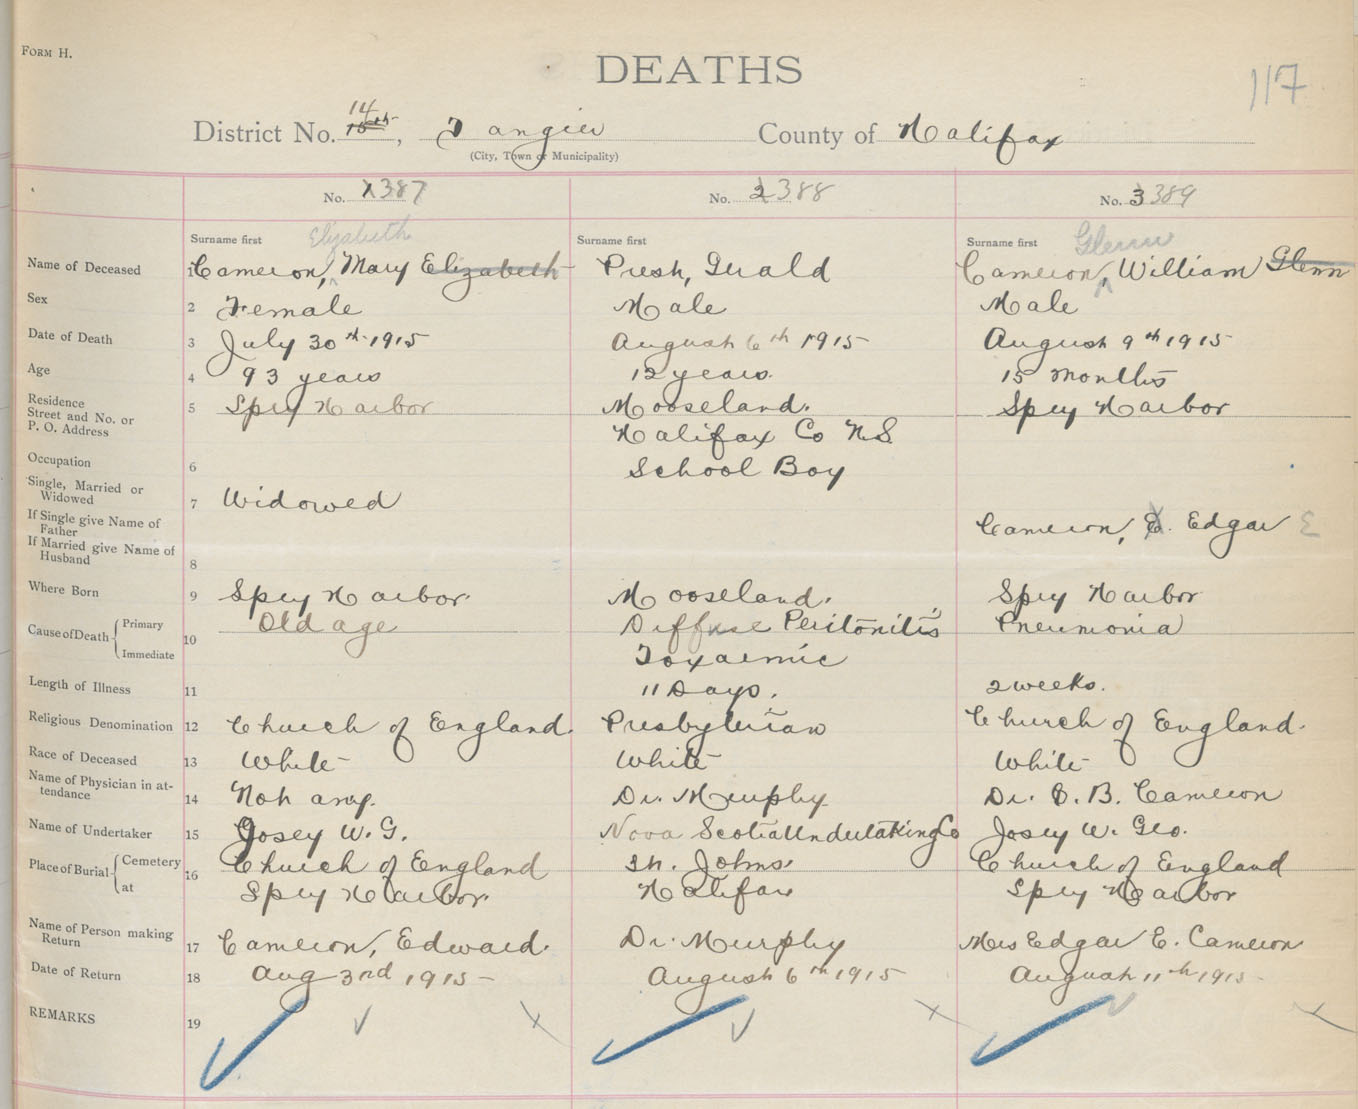 FORM H.
DEATHS
117
14
District No. 15th, Tangier County of Halifax
(City, Town or Municipality)
No. 1 387 No. 2 388 No. 3 389
Surname first Elizabeth Surname first Surname first Glenn
Name of Deceased 1 Cameron, Mary Elizabeth Presh, Gerald Cameron, William Glenn
Sex 2 Female Male Male
Date of Death 3 July 30th 1915 August 6th 1915 August 9th 1915
Age 4 93 years 12 years. 15 months
Residence Street and No. or P. O. Address 5 Spry Harbor Mooseland. Spry Harbor
Halifax Co N.S.
Occupation 6 School Boy
Single, Married or Widowed 7 Widowed
If Single give Name of Father Cameron, E. Edgar E
If Married give Name of Husband 8
Where Born 9 Spry Harbor. Mooseland. Spry Harbor
Cause of Death Primary 10 Old age Diffuse Peritonitis Pneumonia
Immediate Toxaemic
Length of Illness 11 11 Days. 2 weeks.
Religious Denomination 12 Church of England. Presbyterian Church of England.
Race of Deceased 13 White White White
Name of Physician in attendance 14 Not any. Dr. Murphy Dr. C. B. Cameron
Name of Undertaker 15 Josey W. G. Nova Scotia Undertaking Co Josey W. Geo.
Place of Burial Cemetery 16 Church of England St. Johns. Church of England
at Spry Harbor. Halifax Spry Harbor
Name of Person making Return 17 Cameron, Edward. Dr. Murphy Mrs Edgar E. Cameron
Date of Return 18 Aug 3rd 1915 August 6th 1915 August 11th 1915
REMARKS 19